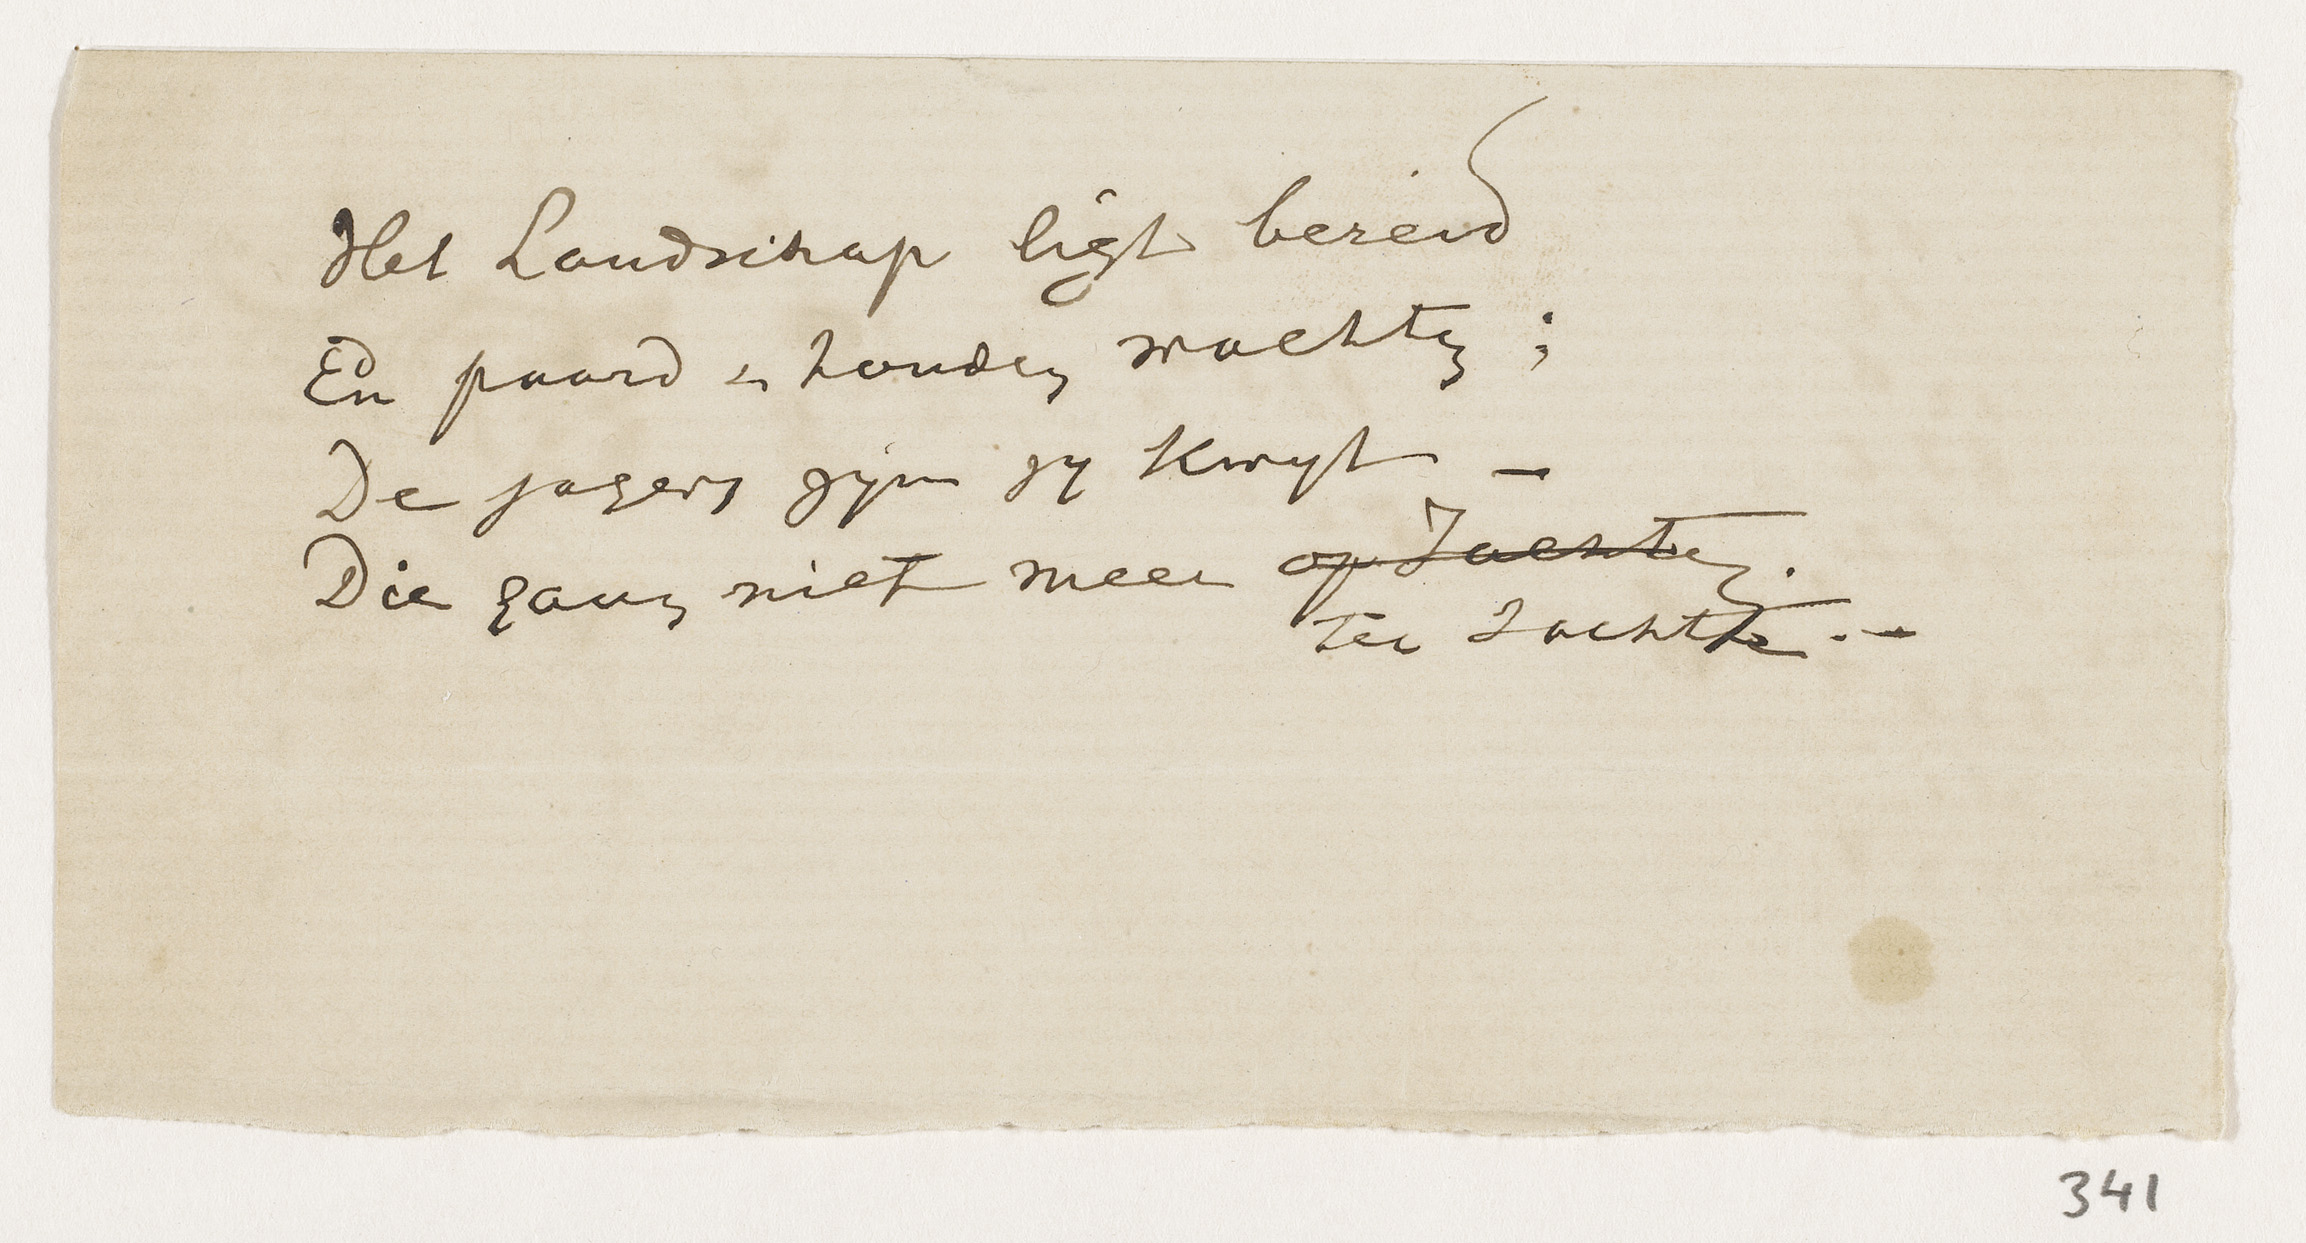 Het Landschap ligt bereid
En paard en honden wachten;
De jagers zijn zij kwijt –
Die gaan niet meer op Jachten.
ter Jachte. –
341